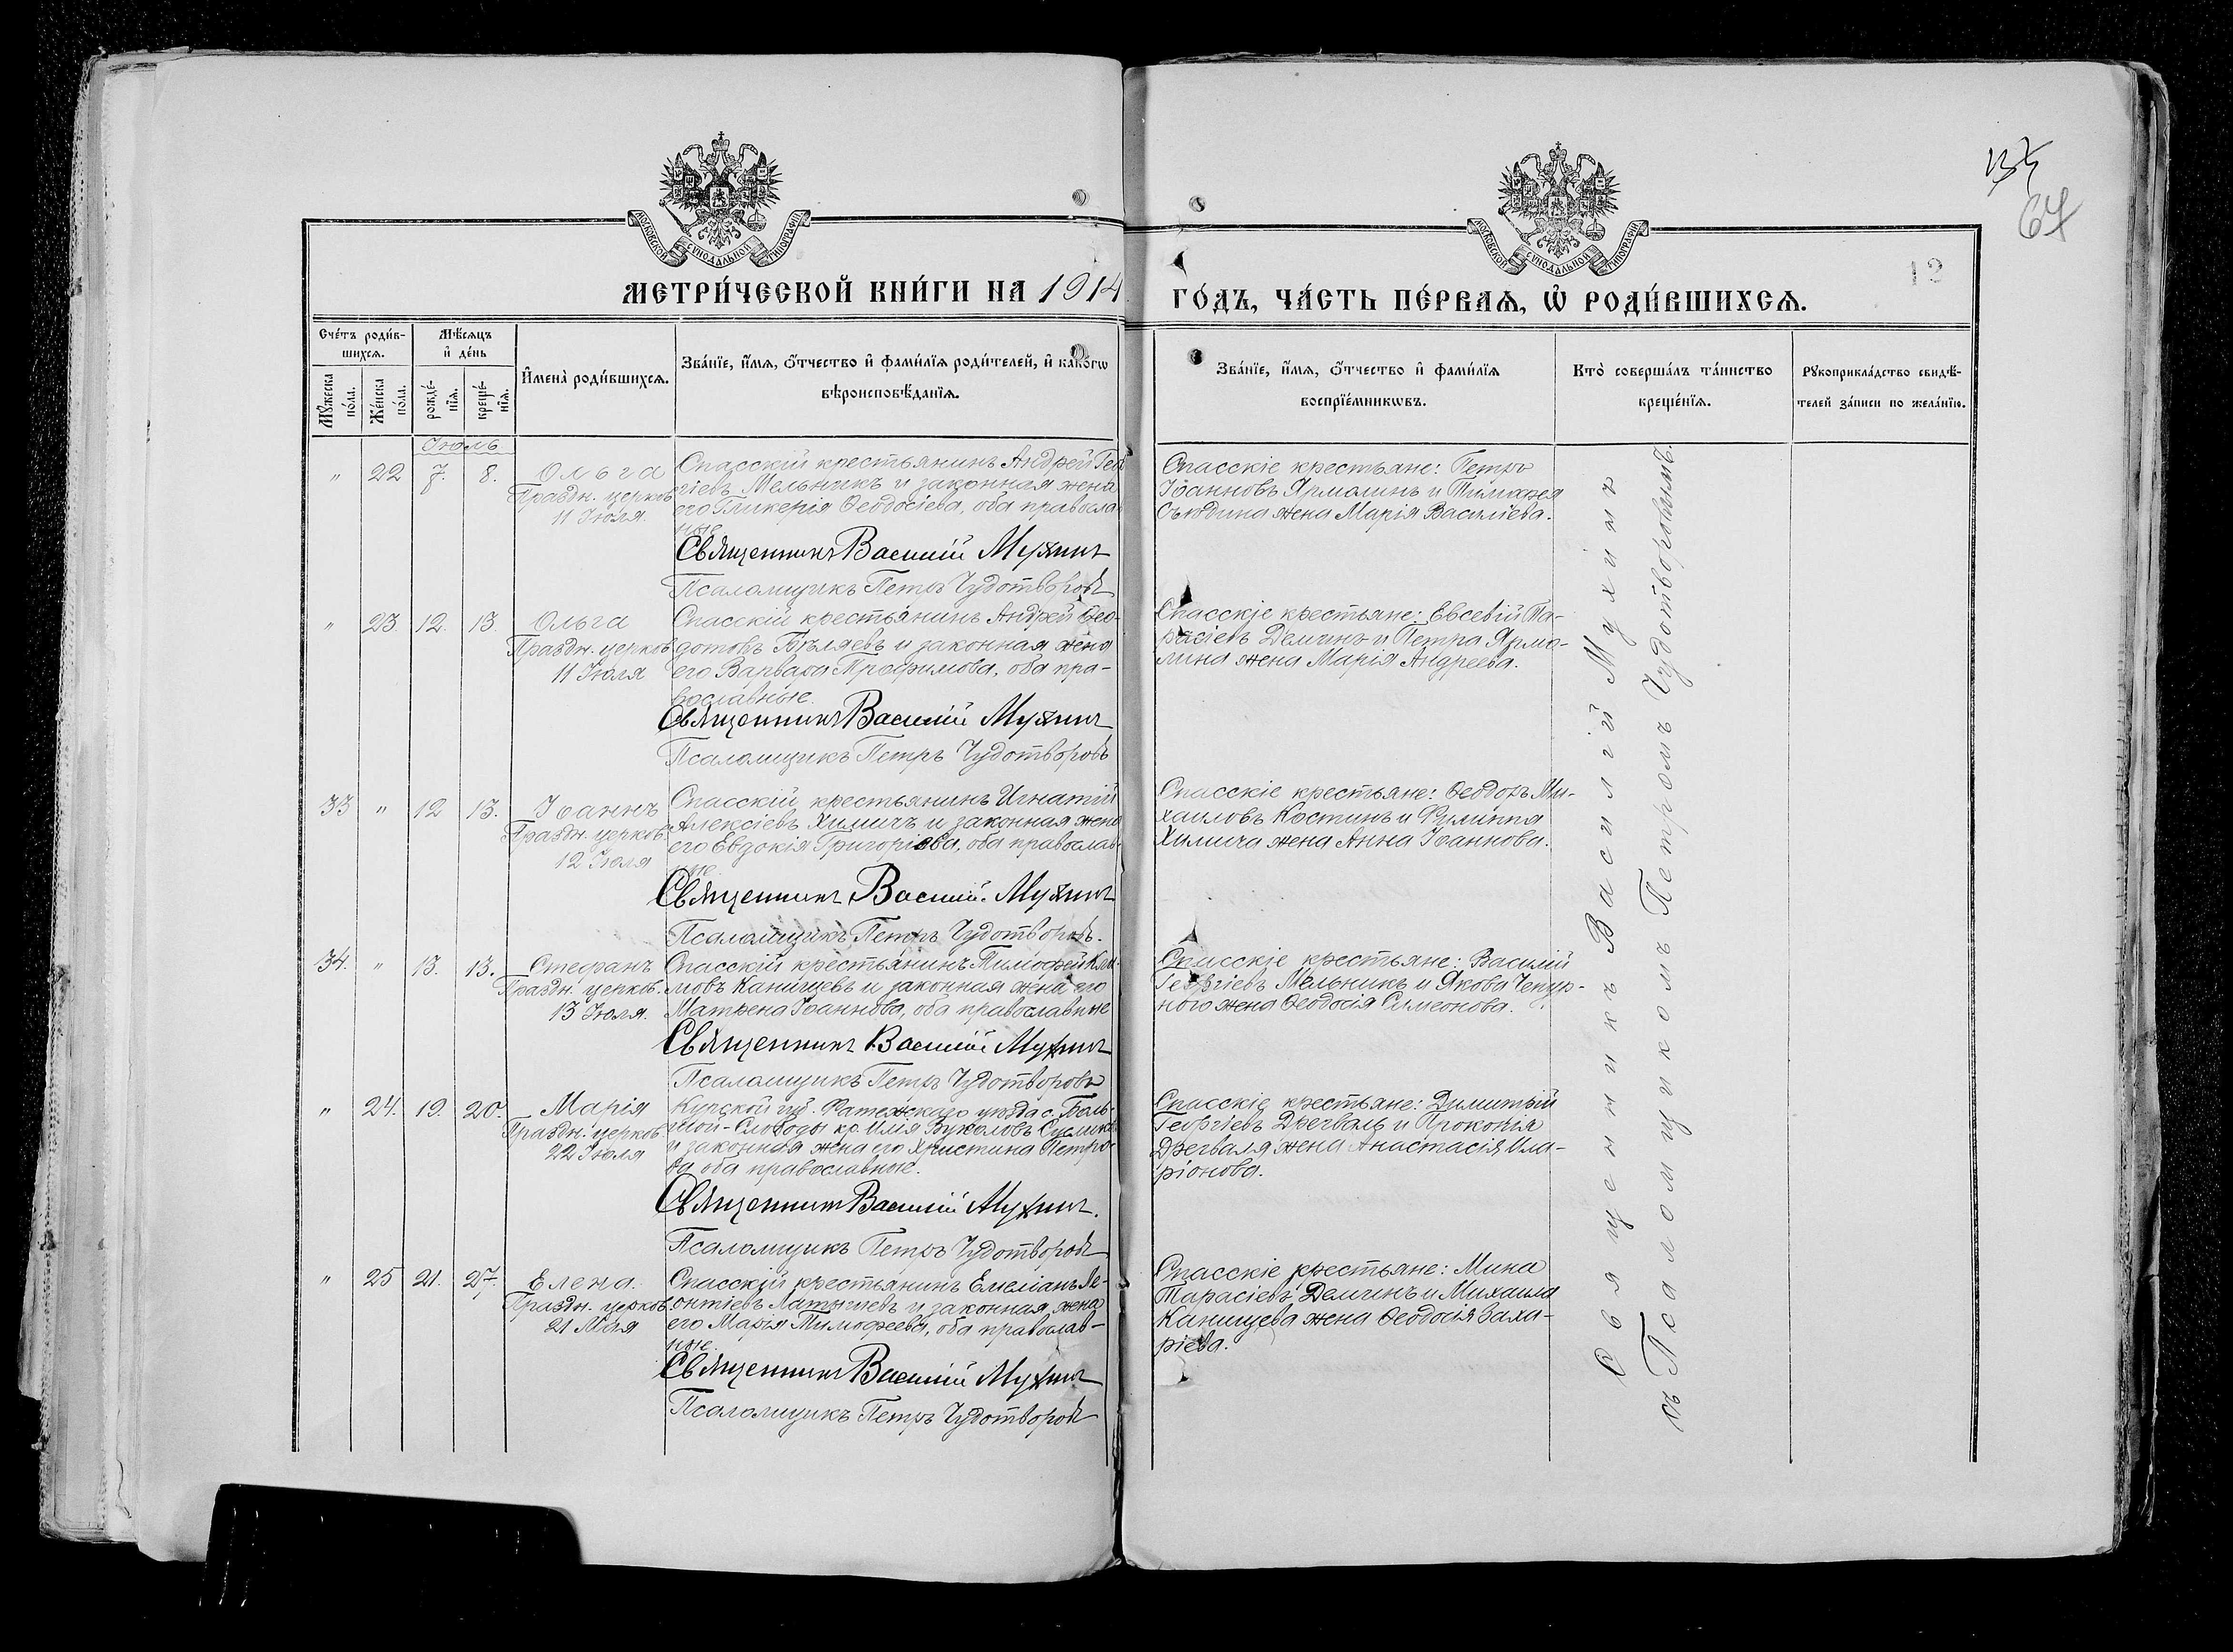 135
64
12
МОСКОВСКОЙ СѴНОДАЛЬНОЙ ТИПОГРАФІИ
МОСКОВСКОЙ СѴНОДАЛЬНОЙ ТИПОГРАФІИ
МЕТРИ́ЧЕСКОЙ КНИ́ГИ НА 1914
ГО́ДЪ, ЧА́СТЬ ПЕ́РВАѦ, Ѡ҆ РОДИ́ВШИХСѦ.
Сче́тъ роди́в-
шихсѧ.
Мꙋ́жеска по́ла.
Же́нска по́ла.
Мѣ́сѧцъ
и҆ де́нь
рожде́-
нїѧ.
креще́-
нїѧ.
И҆мена̀ роди́вшихсѧ.
Зва́нїе, и҆́мѧ, ѻ҆́тчество и҆ фами́лїѧ роди́телей, и҆ како́гѡ
вѣроисповѣ́данїѧ.
Зва́нїе, и҆́мѧ, ѻ҆́тчество и҆ фами́лїѧ
воспрїе́мникѡвъ.
Кто̀ соверша́лъ та́инство
креще́нїѧ.
Рꙋкоприкла́дство свидѣ́-
телей за́писи по жела́нїю.
Іюль
" 22 7. 8. Ольга
Праздн. церков.
11 Іюля.
Спасскій крестьянинъ Андрей Геор
гіевъ Мельникъ и законная жена
его Гликерія Ѳеодосіева, оба православ
ные
Священникъ Василій Мухинъ
Псаломщикъ Петръ Чудотворовъ
Спасскіе крестьяне: Петръ
Іоанновъ Ярмолинъ и Тимоѳея
Съюдина жена Марія Васильева.
" 23 12. 13. Ольга
Праздн. церков.
11 Іюля
Спасскій крестьянинъ Андрей Ѳео-
дотовъ Бѣляевъ и законная жена
его Варвара Трофимова, оба пра-
вославные.
Священникъ Василій Мухинъ
Псаломщикъ Петръ Чудотворовъ
Спасскіе крестьяне: Евсевій Та-
расіевъ Демчинъ и Петра Ярмо-
лина жена Марія Андреева.
33 " 12 13. Іоаннъ
Праздн. церков.
12 Іюля
Спасскій крестьянинъ Игнатій
Алексіевъ Химичъ и законная жена
его Евдокія Григоріева, оба православ-
ные.
Священникъ Василій Мухинъ
Псаломщикъ Петръ Чудотворовъ.
Спасскіе крестьяне: Ѳеодоръ Ми-
хаиловъ Костинъ и Филиппа
Химича жена Анна Іоаннова.
34. " 13. 13. Стефанъ
Праздн. церков.
13 Іюля.
Спасскій крестьянинъ Тимофей Кли-
мовъ Канищевъ и законная жена его
Матрена Іоаннова, оба православные
Священникъ Василій Мухинъ
Псаломщикъ Петръ Чудотворовъ
Спасскіе крестьяне: Василій
Георгіевъ Мельникъ и Якова Чепур-
ного жена Ѳеодосія Симеонова.
" 24. 19. 20. Марія
Праздн. церков.
22 Іюля
Курской губ. Фатежскаго уѣзда с. Боль-
шой-Слободы кр. Илія Вуколовъ
и законная жена его Христина Петро-
ва оба православные.
Священникъ Василій Мухинъ.
Псаломщикъ Петръ Чудотворовъ
Спасскіе крестьяне: Димитрій
Георгіевъ Дрегваль и Прокопія
Дрегваля жена Анастасія Ила-
ріонова.
" 25 21. 27. Елена.
Праздн. церков.
21 Мая
Спасскій крестьянинъ Емеліанъ Ле-
онтіевъ Латышевъ и законная жена
его Марія Тимофеева, оба православ-
ные.
Священникъ Василій Мухинъ
Псаломщикъ Петръ Чудотворовъ
Спасскіе крестьяне: Мина
Тарасіевъ Демчинъ и Михаила
Канищева жена Ѳеодосія Заха-
ріева.
Священникъ Василій Мухинъ
съ Псаломщикомъ Петромъ Чудотворовымъ.